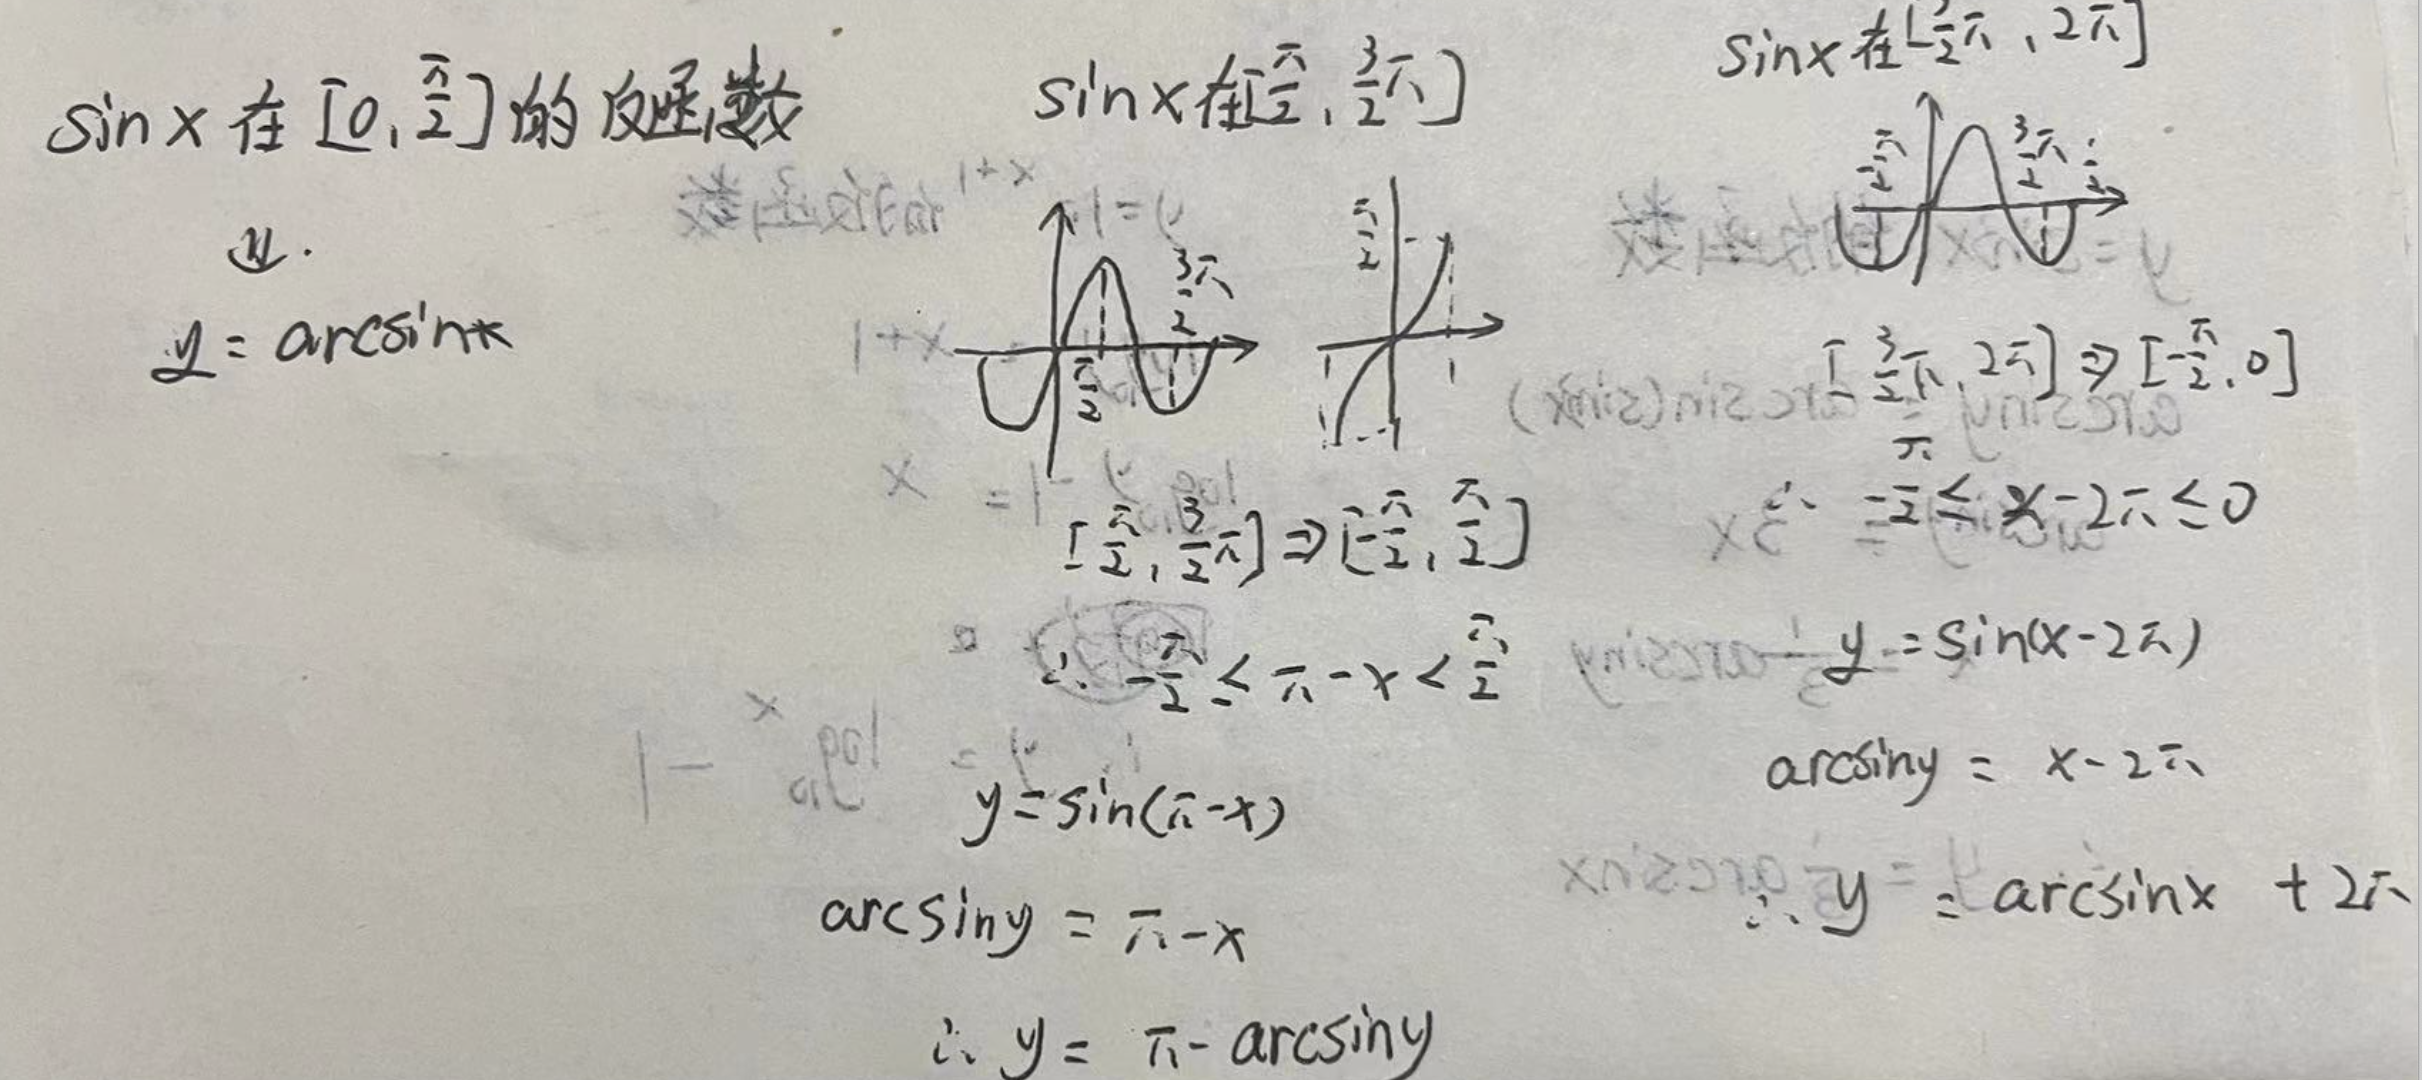 sinx 在 [0, π/2] 的反函数
↓.
y = arcsinx
sinx 在 [π/2, 3/2π]
3/2π
π/2
π/2
[π/2, 3/2π] ⇒ [-π/2, π/2]
∴ -π/2 ≤ π-x < π/2
y = sin(π-x)
arcsiny = π-x
∴ y = π - arcsiny
sinx 在 [3/2π, 2π]
-π/2
3/2π
[3/2π, 2π] ⇒ [-π/2, 0]
∴ -π/2 ≤ x-2π ≤ 0
y = sin(x-2π)
arcsiny = x-2π
∴ y = arcsinx + 2π